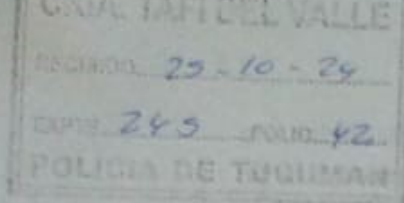 TAFI DEL VALLE
RECIBIDO 25-10-24
EXPTE 245 FOLIO 42
POLICIA DE TUCUMAN